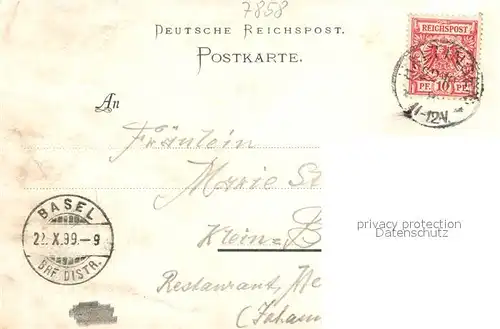 7858
DEUTSCHE REICHSPOST.
POSTKARTE.
REICHSPOST
PF. 10 PF.
11-12N.
An
Fräulein
Marie St
BASEL
22.X.99.-9
BRF. DISTR.
privacy protection
Datenschutz
Klein-B
Restaurant, Me
(Johann